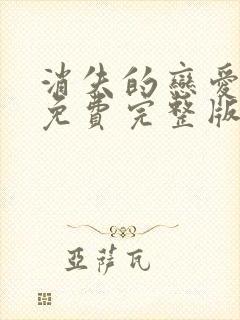 消失的戀愛
免費完整版
亞薩瓦